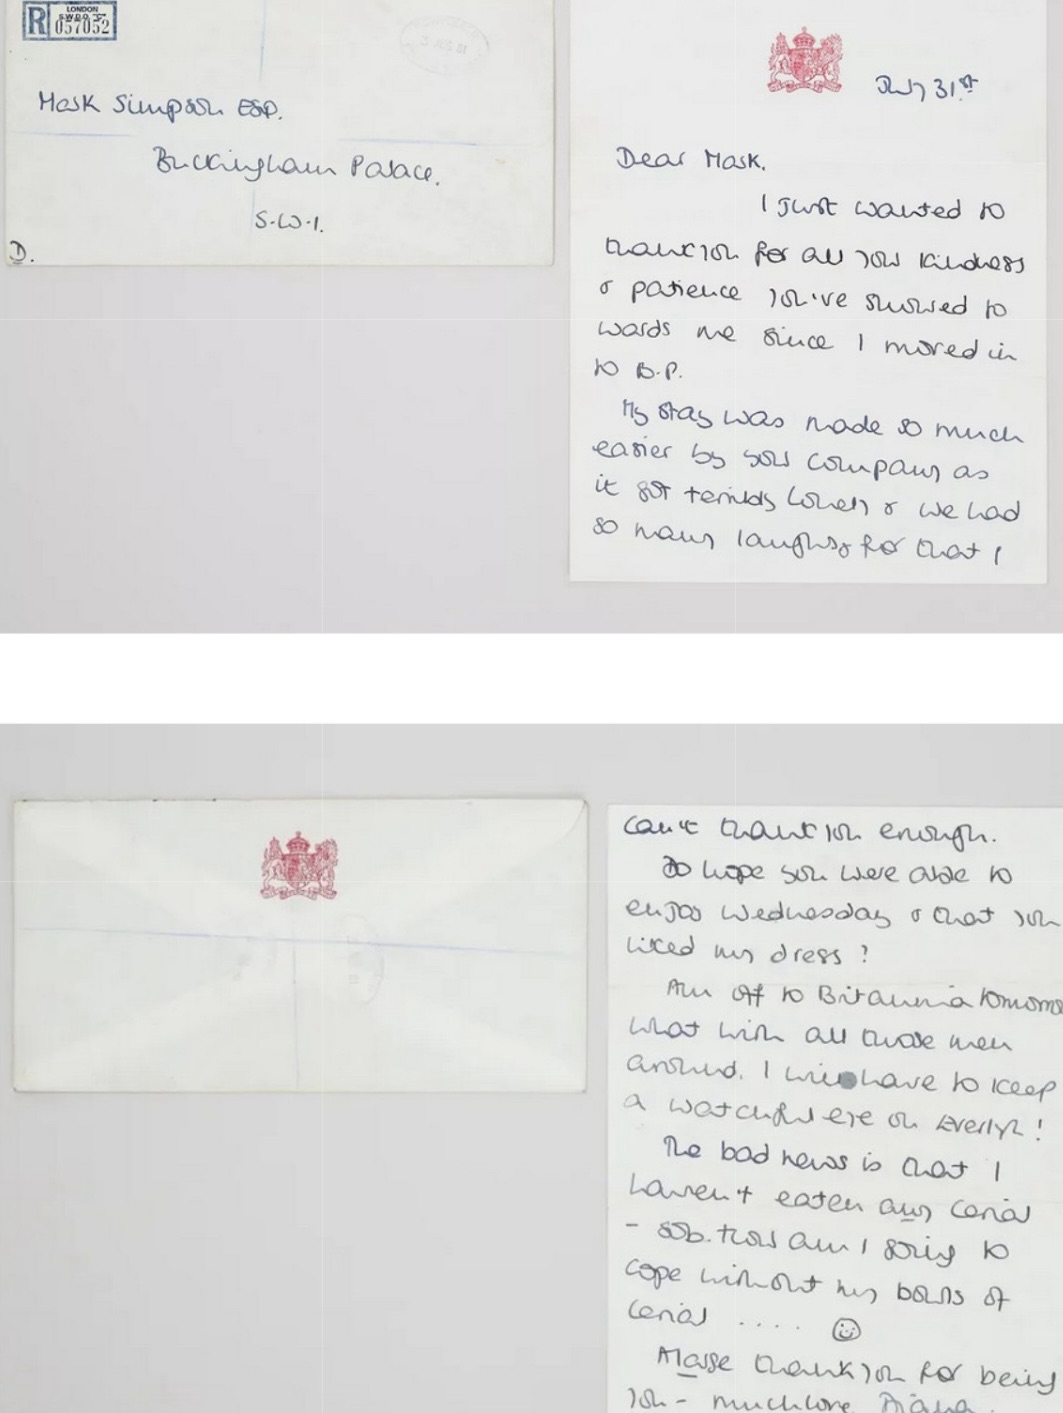 R
LONDON
S.W.D.O.
057052
3 AUG 81
Mark Simpson ESQ.
Buckingham Palace.
S.W.1.
D.
July 31st
Dear Mark.
I just wanted to
thank you for all your kindness
& patience you've showed to
wards me since I moved in
to B.P.
My stay was made so much
easier by your company as
it got terribly lonely & we had
so many laughs, for that I
can't thank you enough.
Do hope you were able to
enjoy Wednesday & that you
liked my dress?
Am off to Britannia tomorro
what with all those men
around. I will have to keep
a watchful eye on Everlyn!
The bad news is that I
haven't eaten any cerial
- sob. How am I going to
cope without my bowls of
cerial .... ☺
A large thank you for being
you - much love Diana.